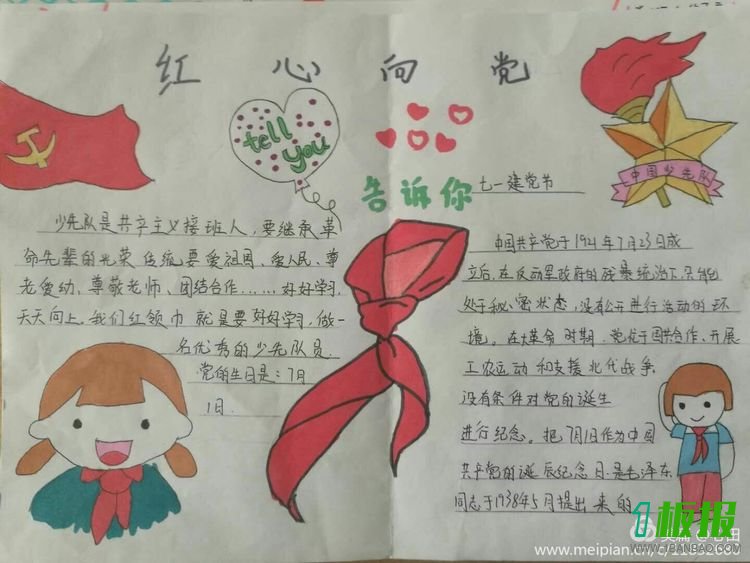 红心向党
tell
you
告诉你
七一建党节
中国少先队
少先队是共产主义接班人,要继承革
命先辈的光荣传统,要爱祖国、爱人民、尊
老爱幼、尊敬老师、团结合作……好好学习,
天天向上。我们红领巾就是要好好学习,做一
名优秀的少先队员.
党的生日是:7月
1日.
中国共产党于1921年7月23日成
立后,在反动军政府的残暴统治下,只能
处于秘密状态,没有公开进行活动的环
境。在大革命时期,党忙于国共合作、开展
工农运动和支援北伐战争,
没有条件对党的诞生
进行纪念。把7月1日作为中国
共产党的诞辰纪念日是毛泽东
同志于1938年5月提出来的
1板报
WWW.1BANBAO.COM
www.meipian.cn/c/11852060